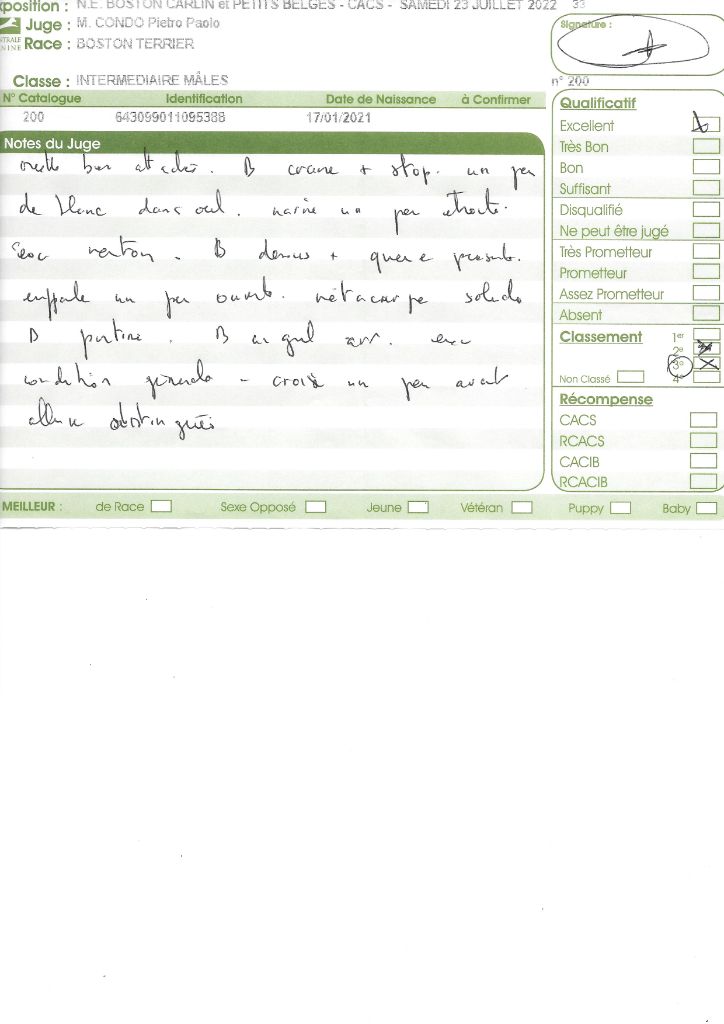 xposition : N.E. BOSTON CARLIN et PETITS BELGES - CACS - SAMEDI 23 JUILLET 2022 33
Juge : M. CONDO Pietro Paolo
Race : BOSTON TERRIER
Classe : INTERMEDIAIRE MÂLES
n° 200
Signature :
N° Catalogue Identification Date de Naissance à Confirmer
200 643099011095388 17/01/2021
Notes du Juge
bien attachée. B crane + stop. un peu
de blanc dans oeil. narine un peu étroite.
B dessus + queue
un peu ouverte. métacarpe solide
B poitrine. B angul arr. exc
condition générale - croise un peu avant
allure
Qualificatif
Excellent
Très Bon
Bon
Suffisant
Disqualifié
Ne peut être jugé
Très Prometteur
Prometteur
Assez Prometteur
Absent
Classement 1er
2e
3e
Non Classé 4e
Récompense
CACS
RCACS
CACIB
RCACIB
MEILLEUR : de Race Sexe Opposé Jeune Vétéran Puppy Baby